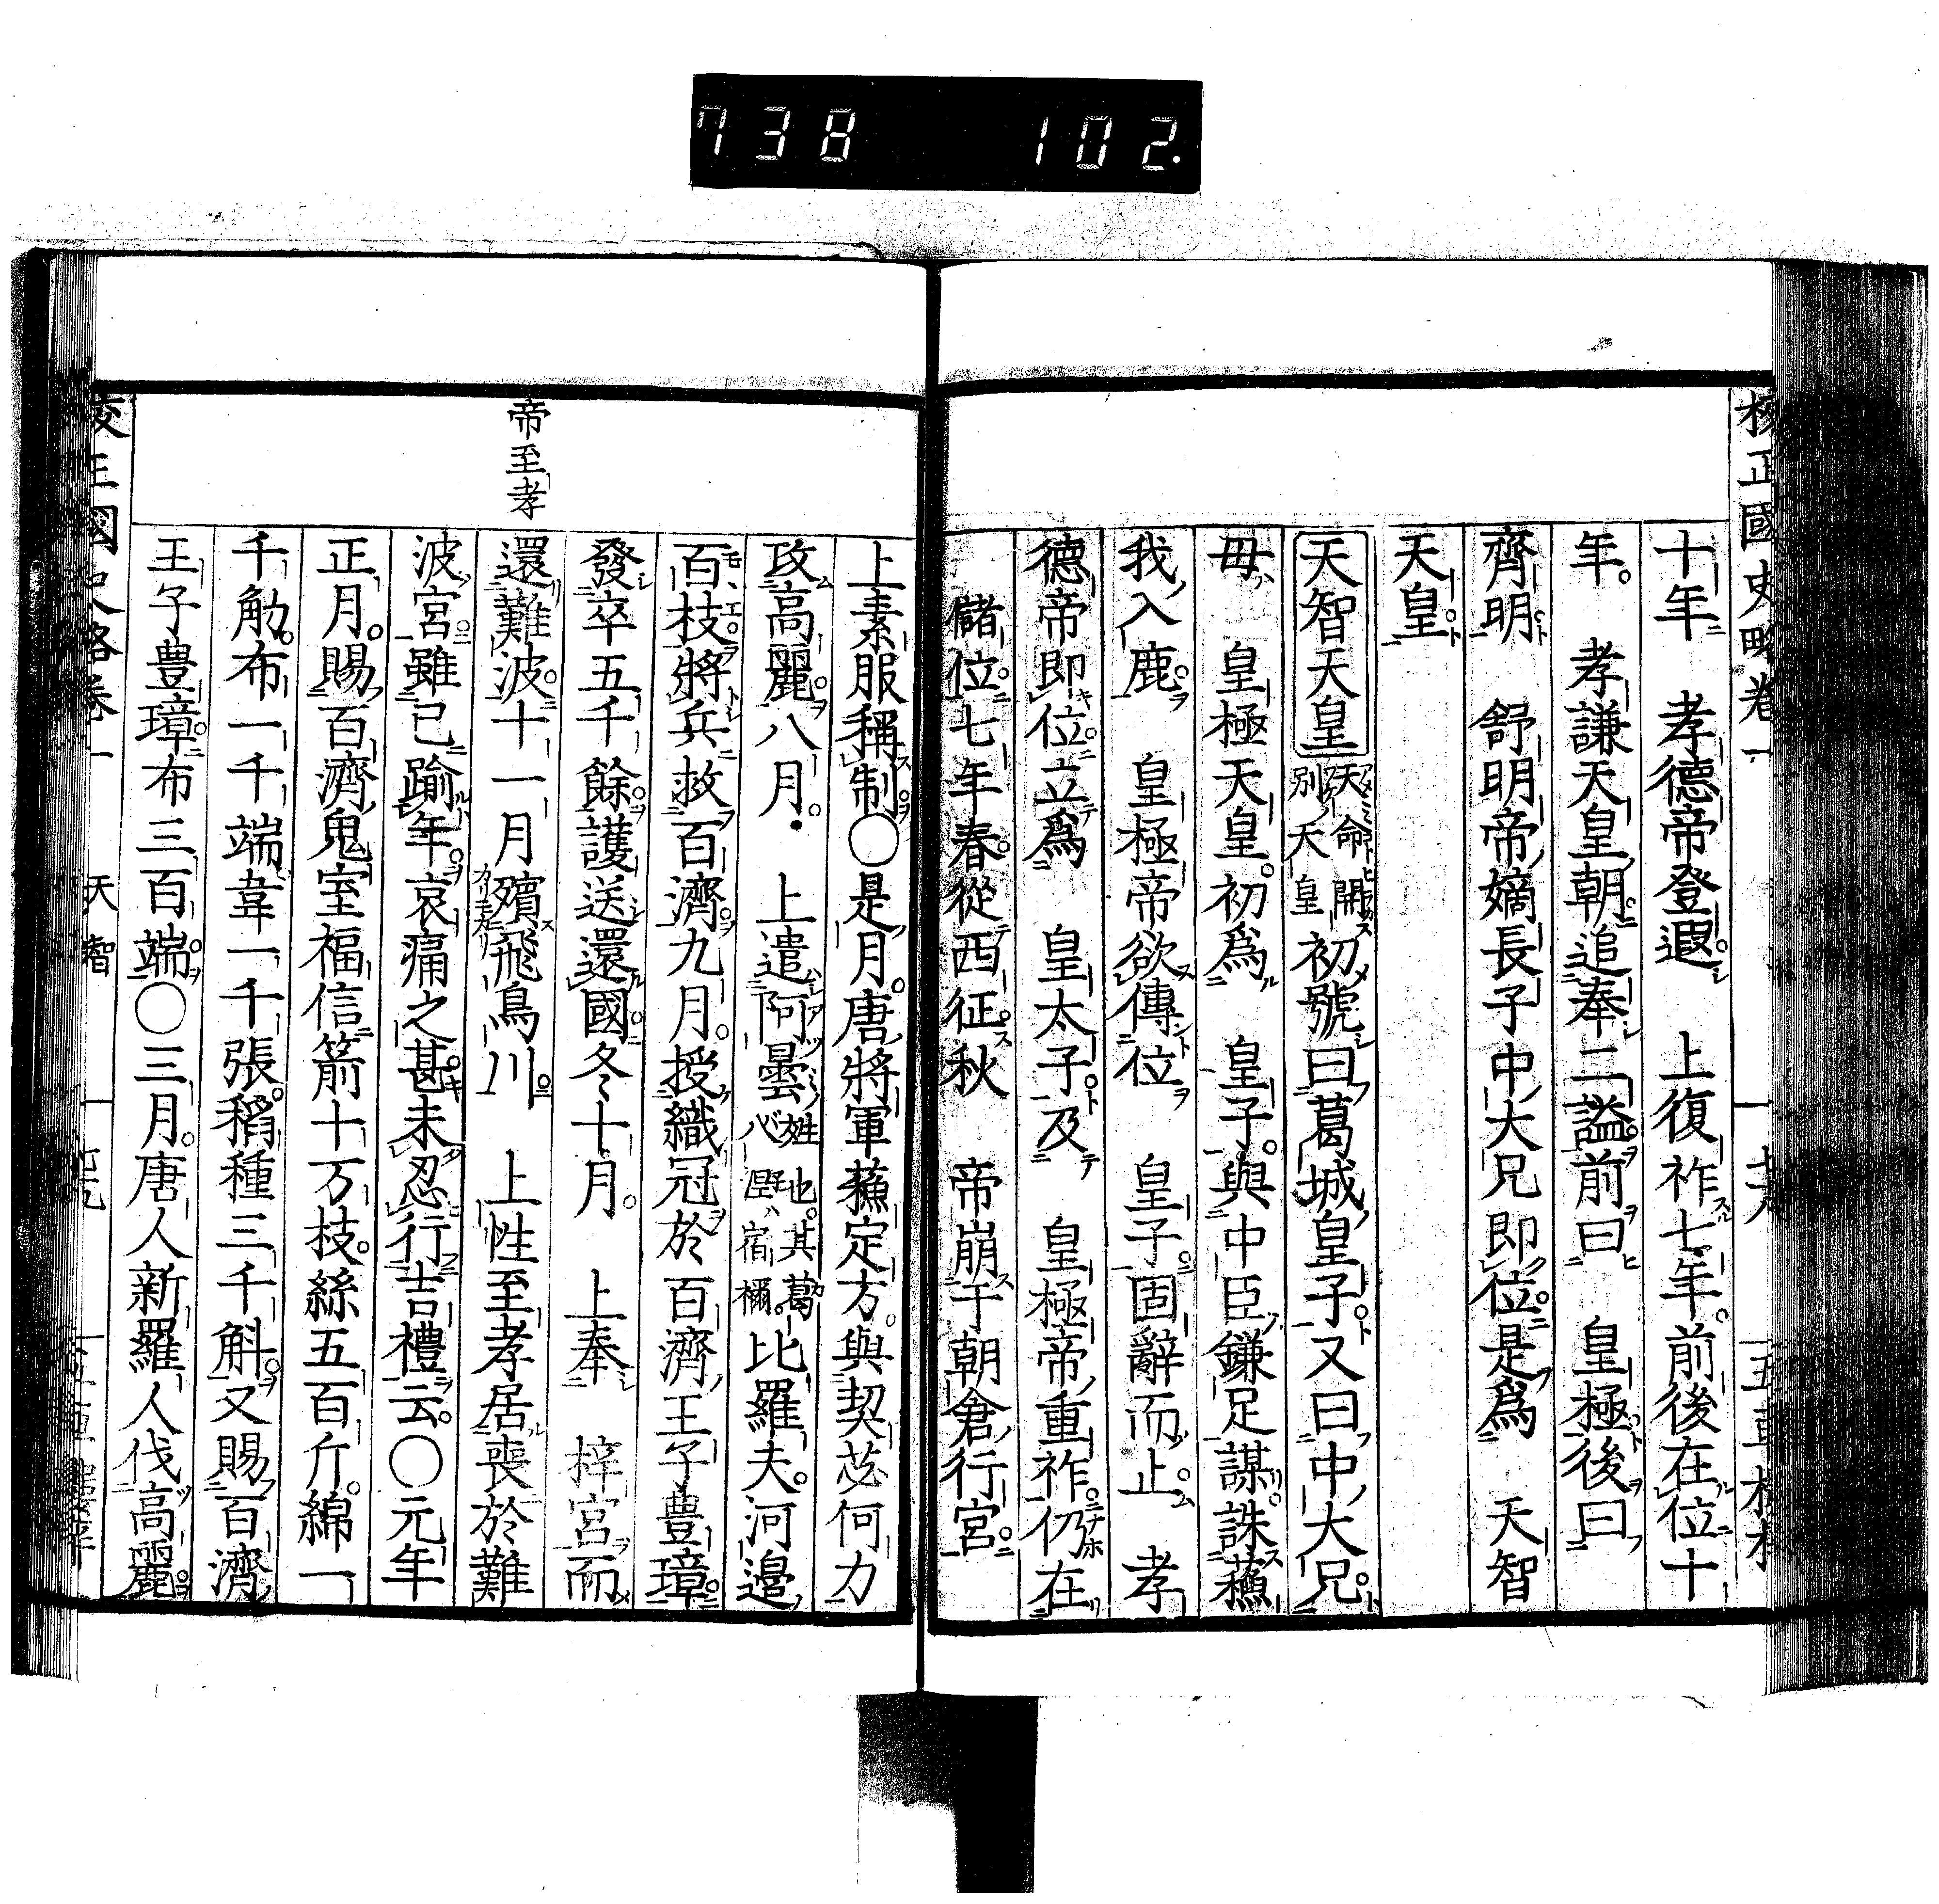 738 102.
校正國史畧卷一
十年 孝德帝登遐 上復祚七年前後在位十
年。 孝謙天皇朝追奉二謚前曰 皇極後曰
齊明 舒明帝嫡長子中大兄即位是爲 天智
天皇
天智天皇 天命開別天皇 初號曰葛城皇子又曰中大兄
母 皇極天皇。初爲 皇子。與中臣鎌足謀誅蘓
我入鹿 皇極帝欲傳位 皇子固辭而止 孝
德帝即位立爲 皇太子及 皇極帝重祚仍在
儲位七年春從西征秋 帝崩于朝倉行宮
上素服稱制○是月。唐將軍蘓定方與契苾何力
攻高麗八月。 上遣阿曇 姓也。其葛必 比羅夫。河邉
百枝將兵救百濟九月。授織冠於百濟王子豊璋
發卒五千餘護送還國冬十月。 上奉 梓宮而
還難波十一月殯飛鳥川 上性至孝居喪於難
帝至孝
波宮雖已踰年哀痛之甚未忍行吉禮云。○元年
正月。賜百濟鬼室福信箭十万枝。絲五百斤。綿一
千觔。布一千端韋一千張。稻種三千斛。又賜百濟
王子豊璋布三百端○三月。唐人新羅人伐高麗
國史略卷一 天智